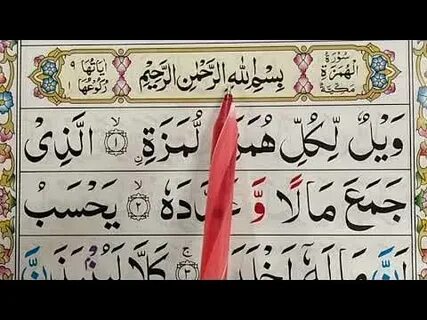 سُوْرَةُ الْهُمَزَةِ مَكِّيَّةٌ
بِسْمِ اللهِ الرَّحْمٰنِ الرَّحِيْمِ
اٰيَاتُهَا ٩ رُكُوْعُهَا ١
وَيْلٌ لِّكُلِّ لُّمَزَةٍ ۙ﴿١﴾ الَّذِىْ
جَمَعَ مَالًا وَّ ۙ﴿٢﴾ يَحْسَبُ
مَالَهٗ ۚ﴿٣﴾ كَلَّا